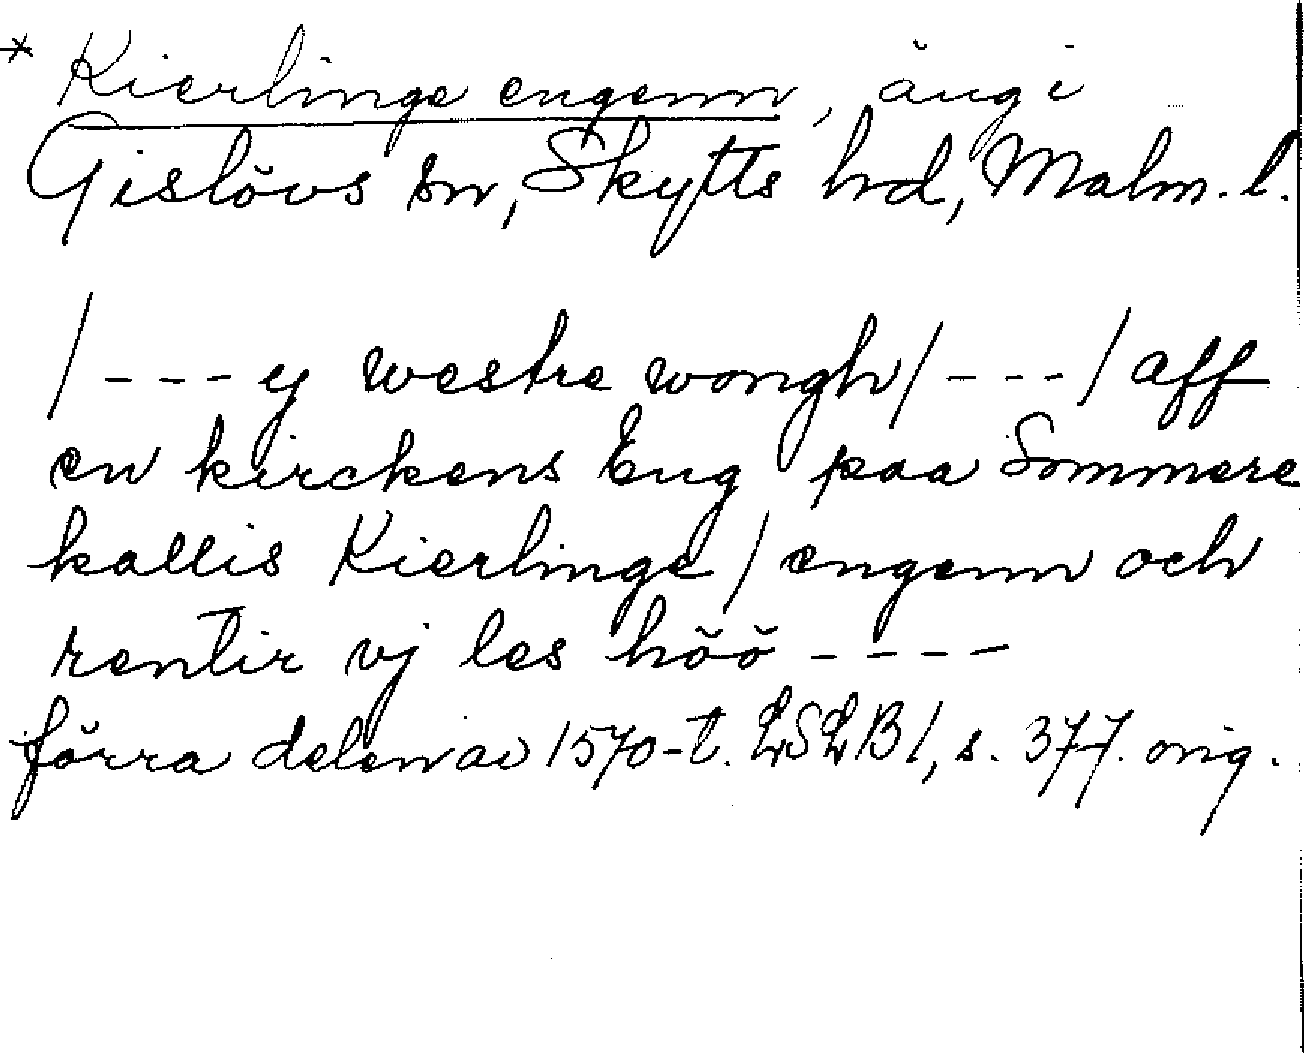 * Kierlinge engenn, äng i
Gislövs sn, Skytts hd, Malm. l.
/---y westre wongh/---/ aff
en kirckens Eng paa Sommere
kallis Kierlinge/ engenn och
rentir vj les höö ----
förra delen av 1570-t. LSLB 1, s. 377. orig.